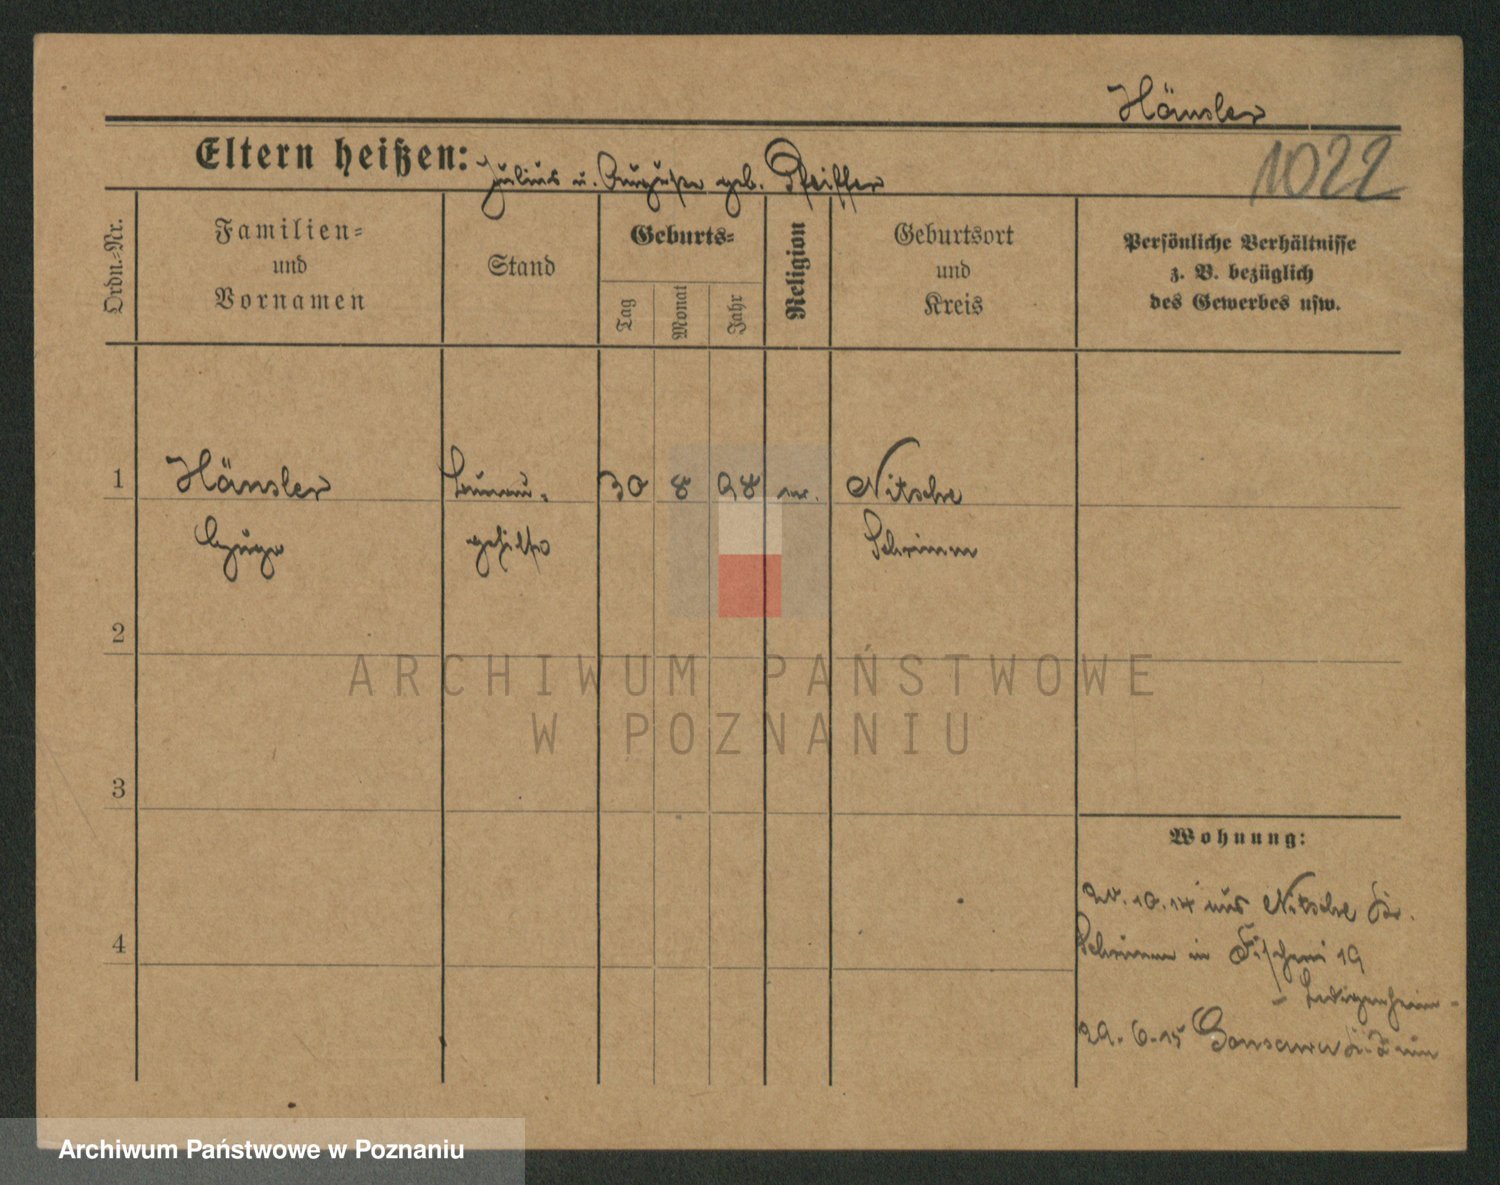 Hänsler
1022
Eltern heißen: Julius u. Auguste geb. Pfeiffer
Ordn.-Nr.
Familien-
und
Vornamen
Stand
Geburts-
Tag
Monat
Jahr
Religion
Geburtsort
und
Kreis
Persönliche Verhältnisse
z. B. bezüglich
des Gewerbes usw.
1 Hänsler 30 8 98 Nitsche
Hugo gehilfe Schrimm
2
3
4
Wohnung:
10.14 aus Nitsche Kr.
Schrimm in Fischerei 19
- Ledigenheim -
29.6.15
ARCHIWUM PAŃSTWOWE
W POZNANIU
Archiwum Państwowe w Poznaniu